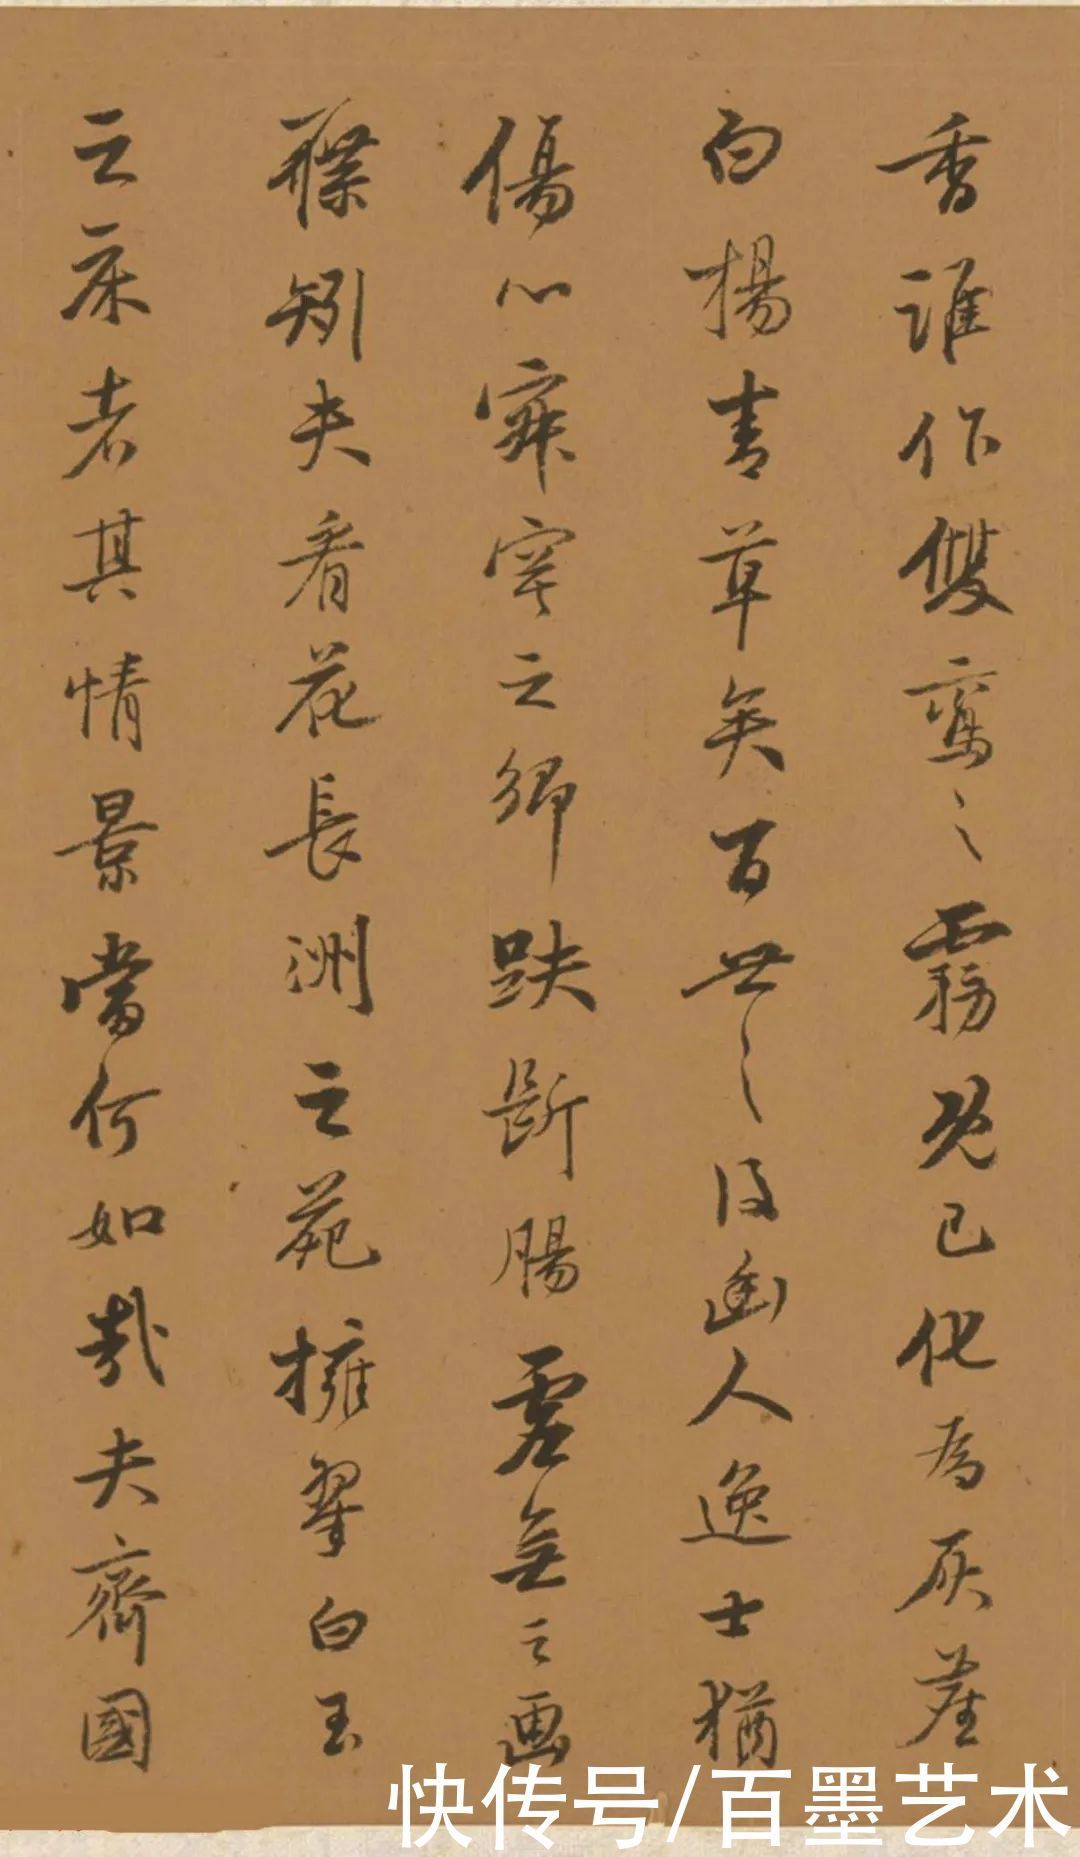 香誰作雙鸞之霧既已化為灰塵
白楊青草矣百世之後幽人逸士猶
傷心寂寞之鄉斷腸虛無之画
矧夫看花長洲之苑擁翠白玉
之床者其情景當何如哉夫齊國
快传号/百墨艺术